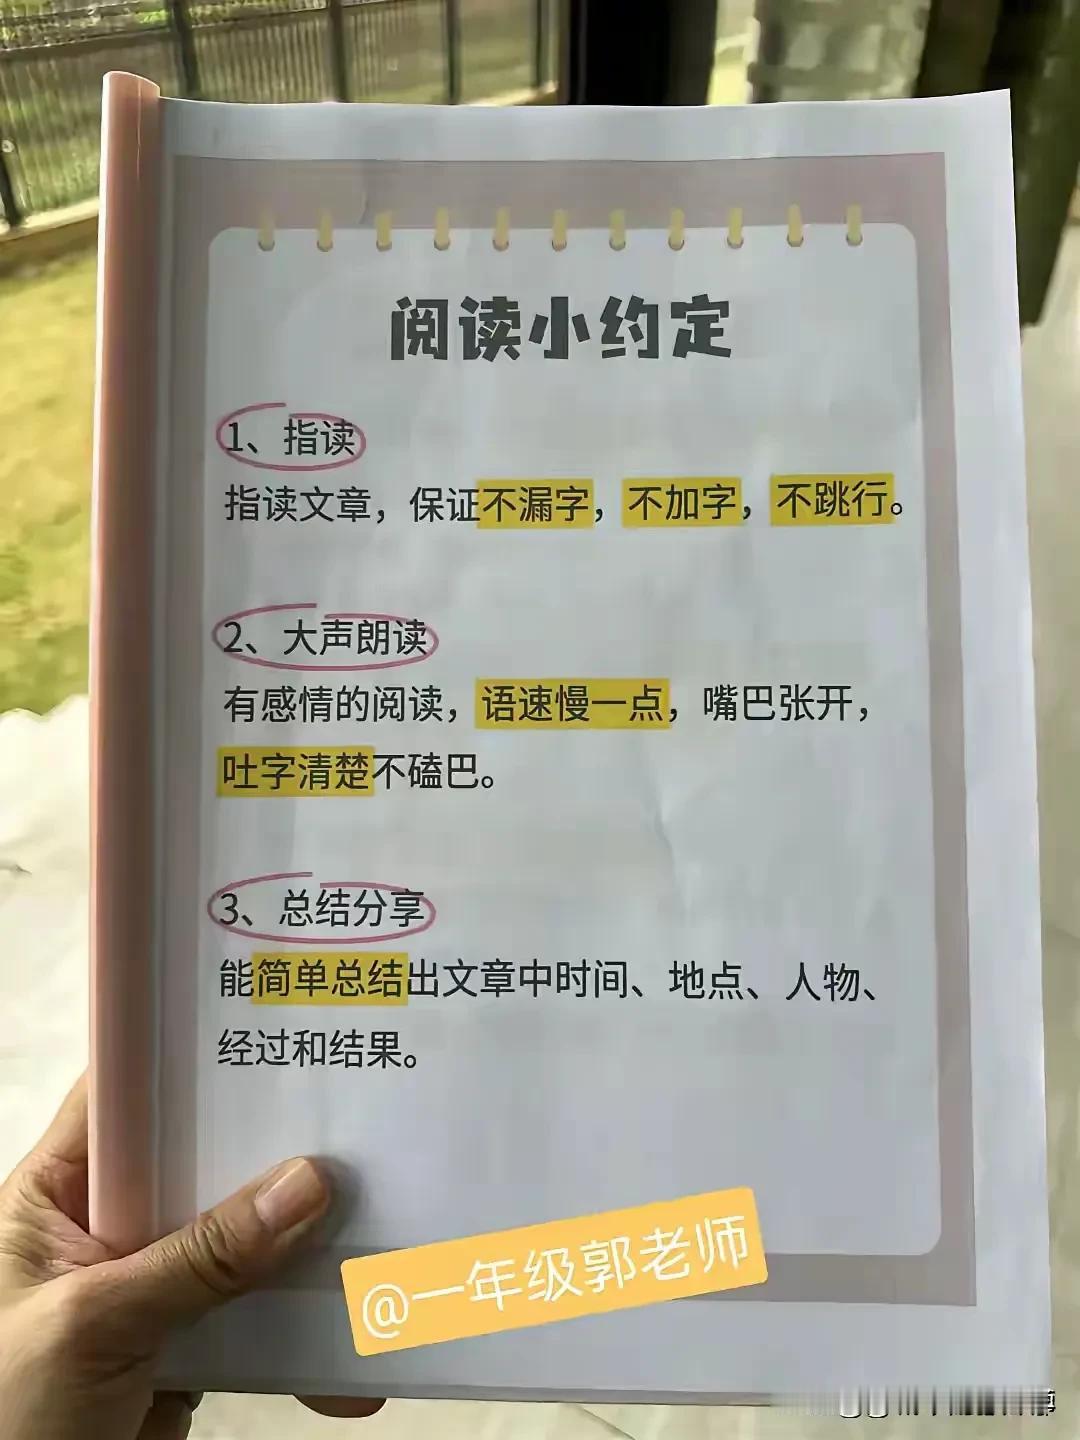 阅读小约定
1、指读
指读文章，保证不漏字，不加字，不跳行。
2、大声朗读
有感情的阅读，语速慢一点，嘴巴张开，
吐字清楚不磕巴。
3、总结分享
能简单总结出文章中时间、地点、人物、
经过和结果。
@一年级郭老师